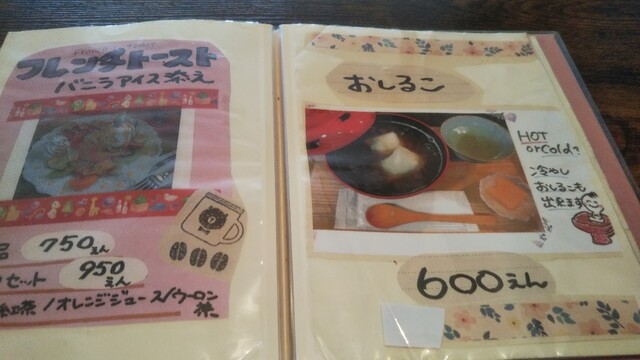 フレンチトースト
バニラアイス添え
品 750えん
セット 950えん
紅茶/オレンジジュース/ウーロン
茶
おしるこ
HOT
orCold?
冷やし
おしるこも
出来ます
600えん